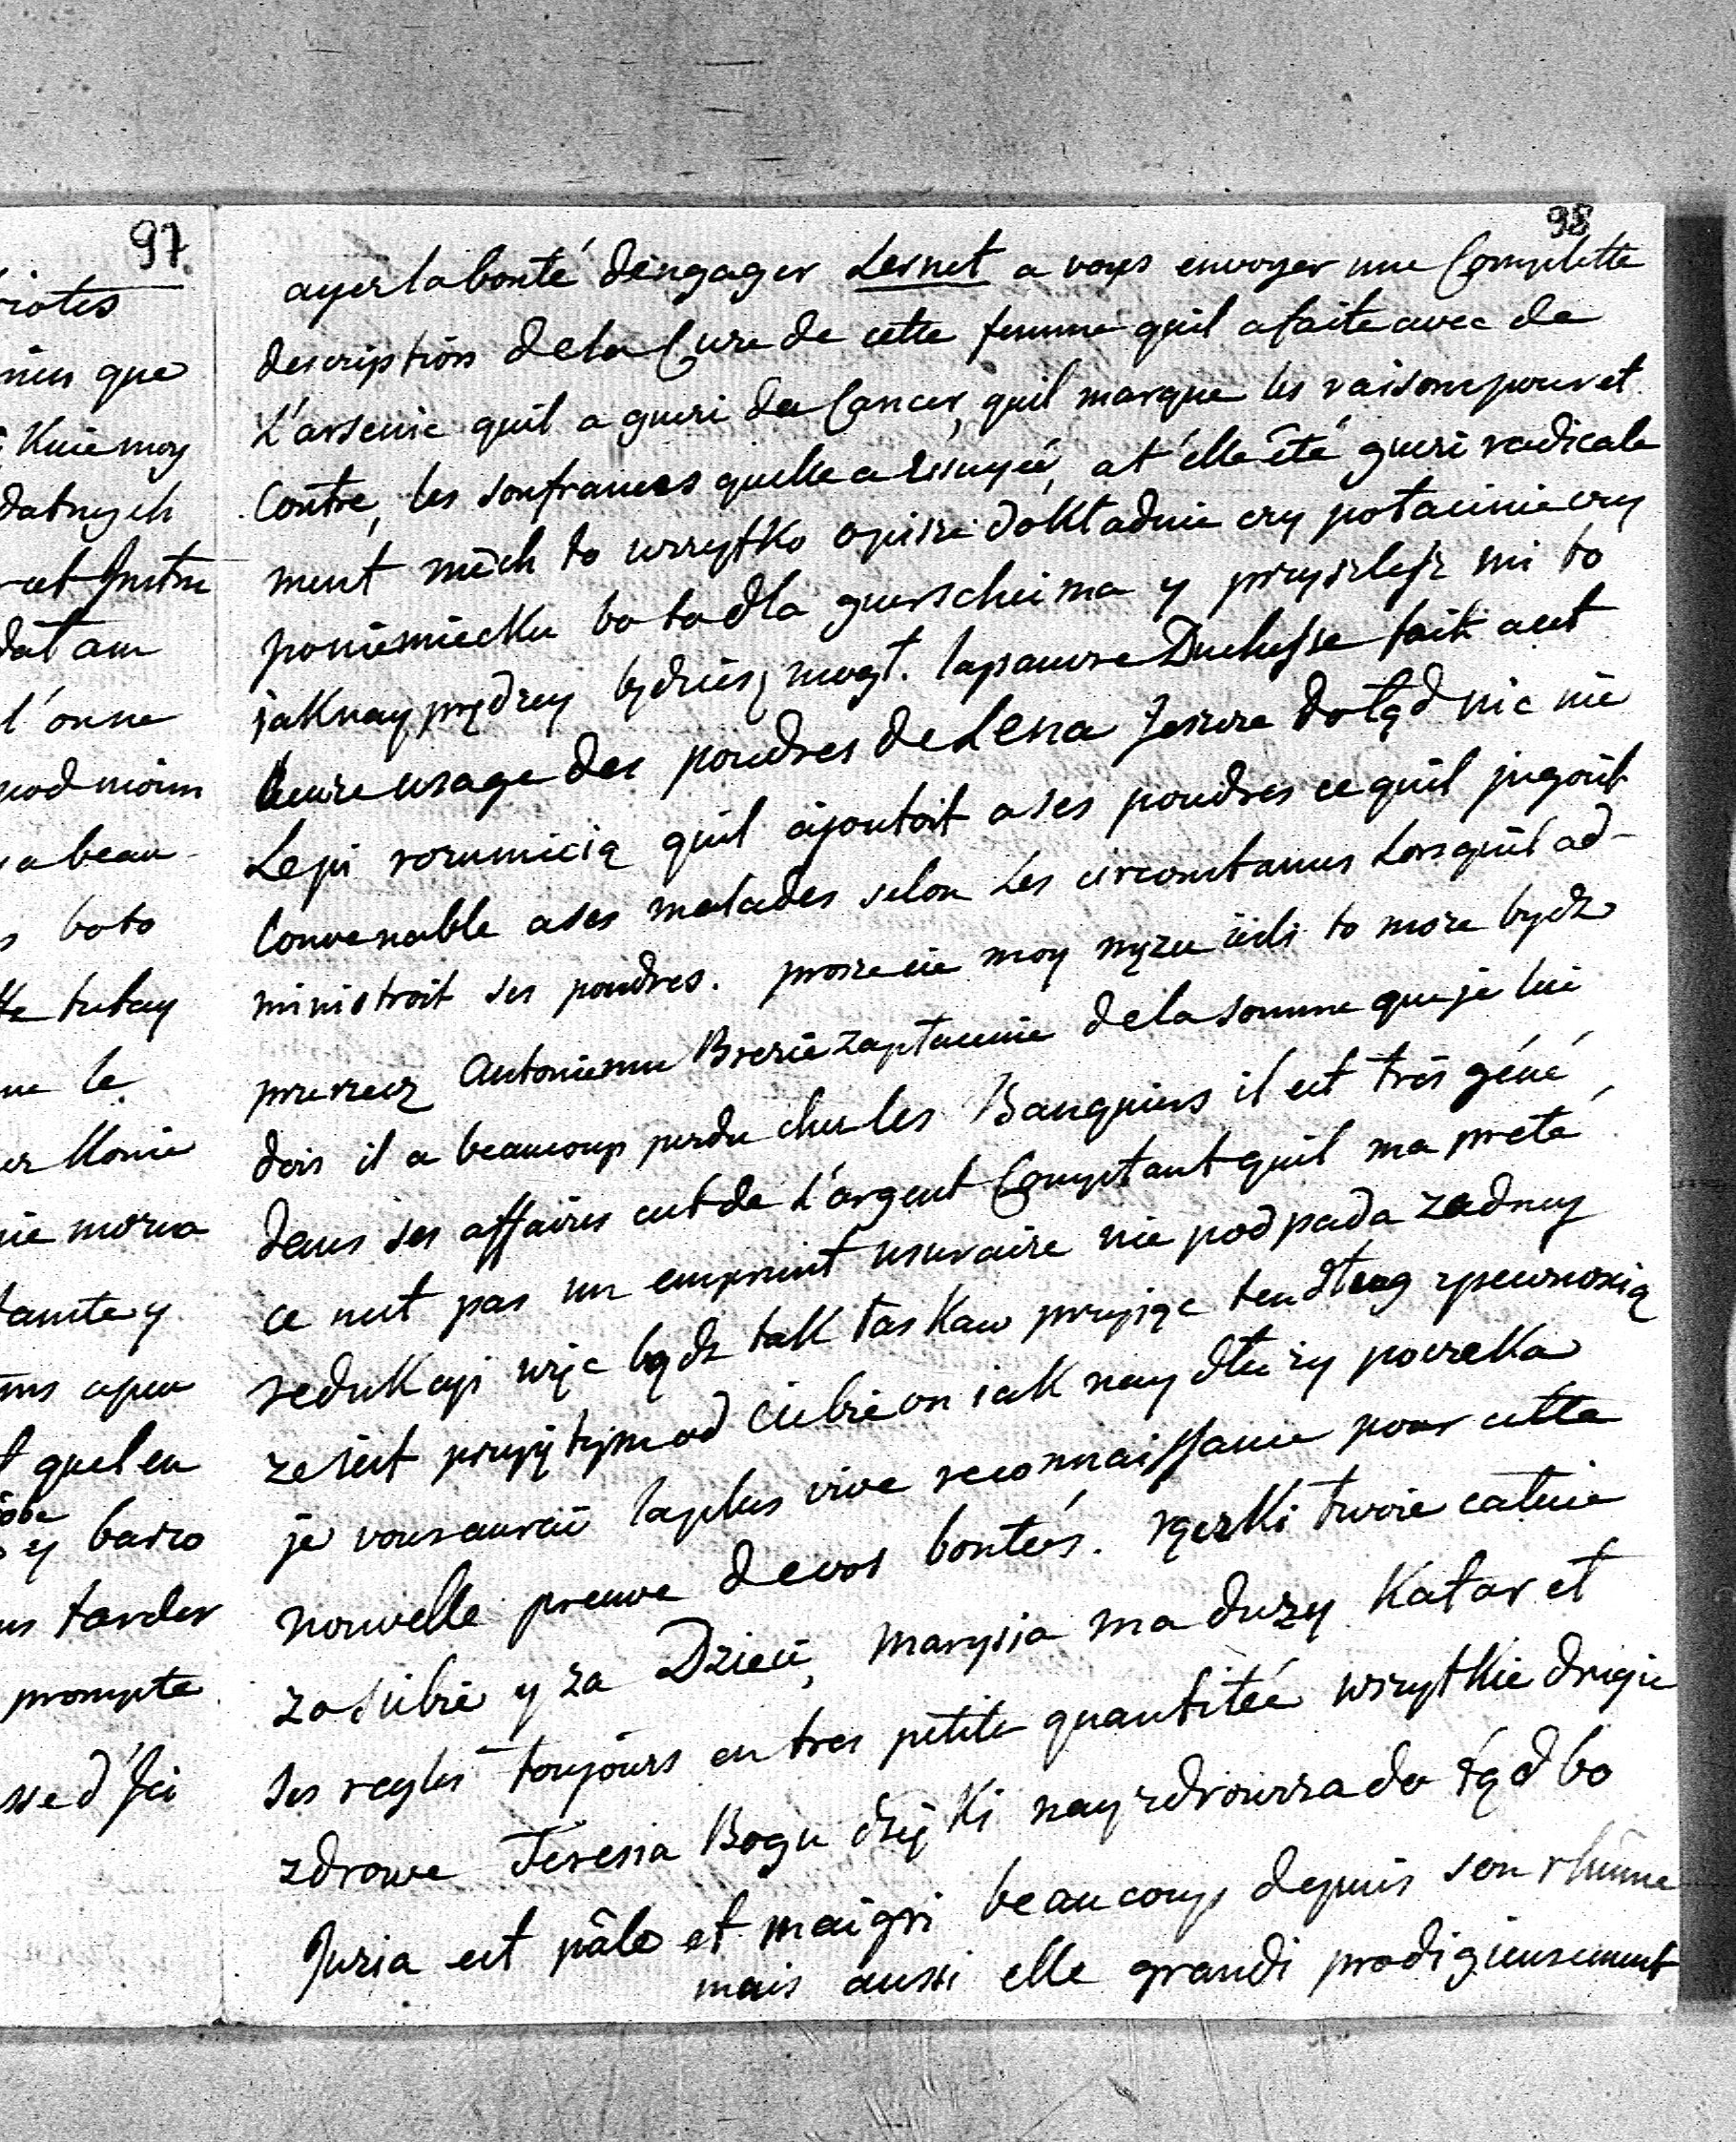 97
riotes
nius que
kniemoy
datnych
dat am
l'onne
pod moim
a beau-
boto
tutay
ne le
nie morva
tamtey
quelen
y barzo
us tarder
prompte
se d'Jci
98
ayez la bonté d'engager Lernet a vous envoyer une Complette
description de la Cure de cette femme quil a faite avec de
L'arsenic quil a gueri du Cancer, quil marque les raisons pour et
Contre, les soufrances quelle a Essuyée, at'elle été gueri radicale
ment niech to wszytko opisze dokładnie czy połacinie czy
poniemiecku bo to dla guerscheima y przyszlesz mi to
jaknayprędzey będziesz mogł. la pauvre Duchesse fait a cet
heure usage des poudres de Lena Jesure dotąd nic nie
Lepi rozumicią quil ajoutoit a ses poudres ce quil jugoit
Convenable a ses malades selon Les circonstances Lorsquil ad-
ministroit ses poudres. prosze cie moy mężu iesli to może bydz
przyrzecz Antoniemu Brezie zapłacenie de la somme que je lui
dois il a beaucoup perdu ches les Banquiers il est très géné
dans ses affaires cest de L'argent Comptant quil ma preté
ce nest pas un emprunt usuraire nie podpada zadney
redukcyi więc bądz tak łaskaw przyiąc ten dług zpewnoscią
ze iest przyiętym od ciebie on iak naydłuży poczeka
je vous aurai la plus vive reconnaissance pour cette
nouvelle preuve de vos bontés. rączki twoie całuie
za siebie y za Dzieci, Marysia ma duzy Katar et
ses regles toujours en tres petite quantitée wszytkie drugie
zdrowe Teresia Bogu dzięki nayzdrowsza do tąd bo
Juzia est pâle et maigri beaucoup depuis son rhûme
mais aussi elle grandi prodigieusement